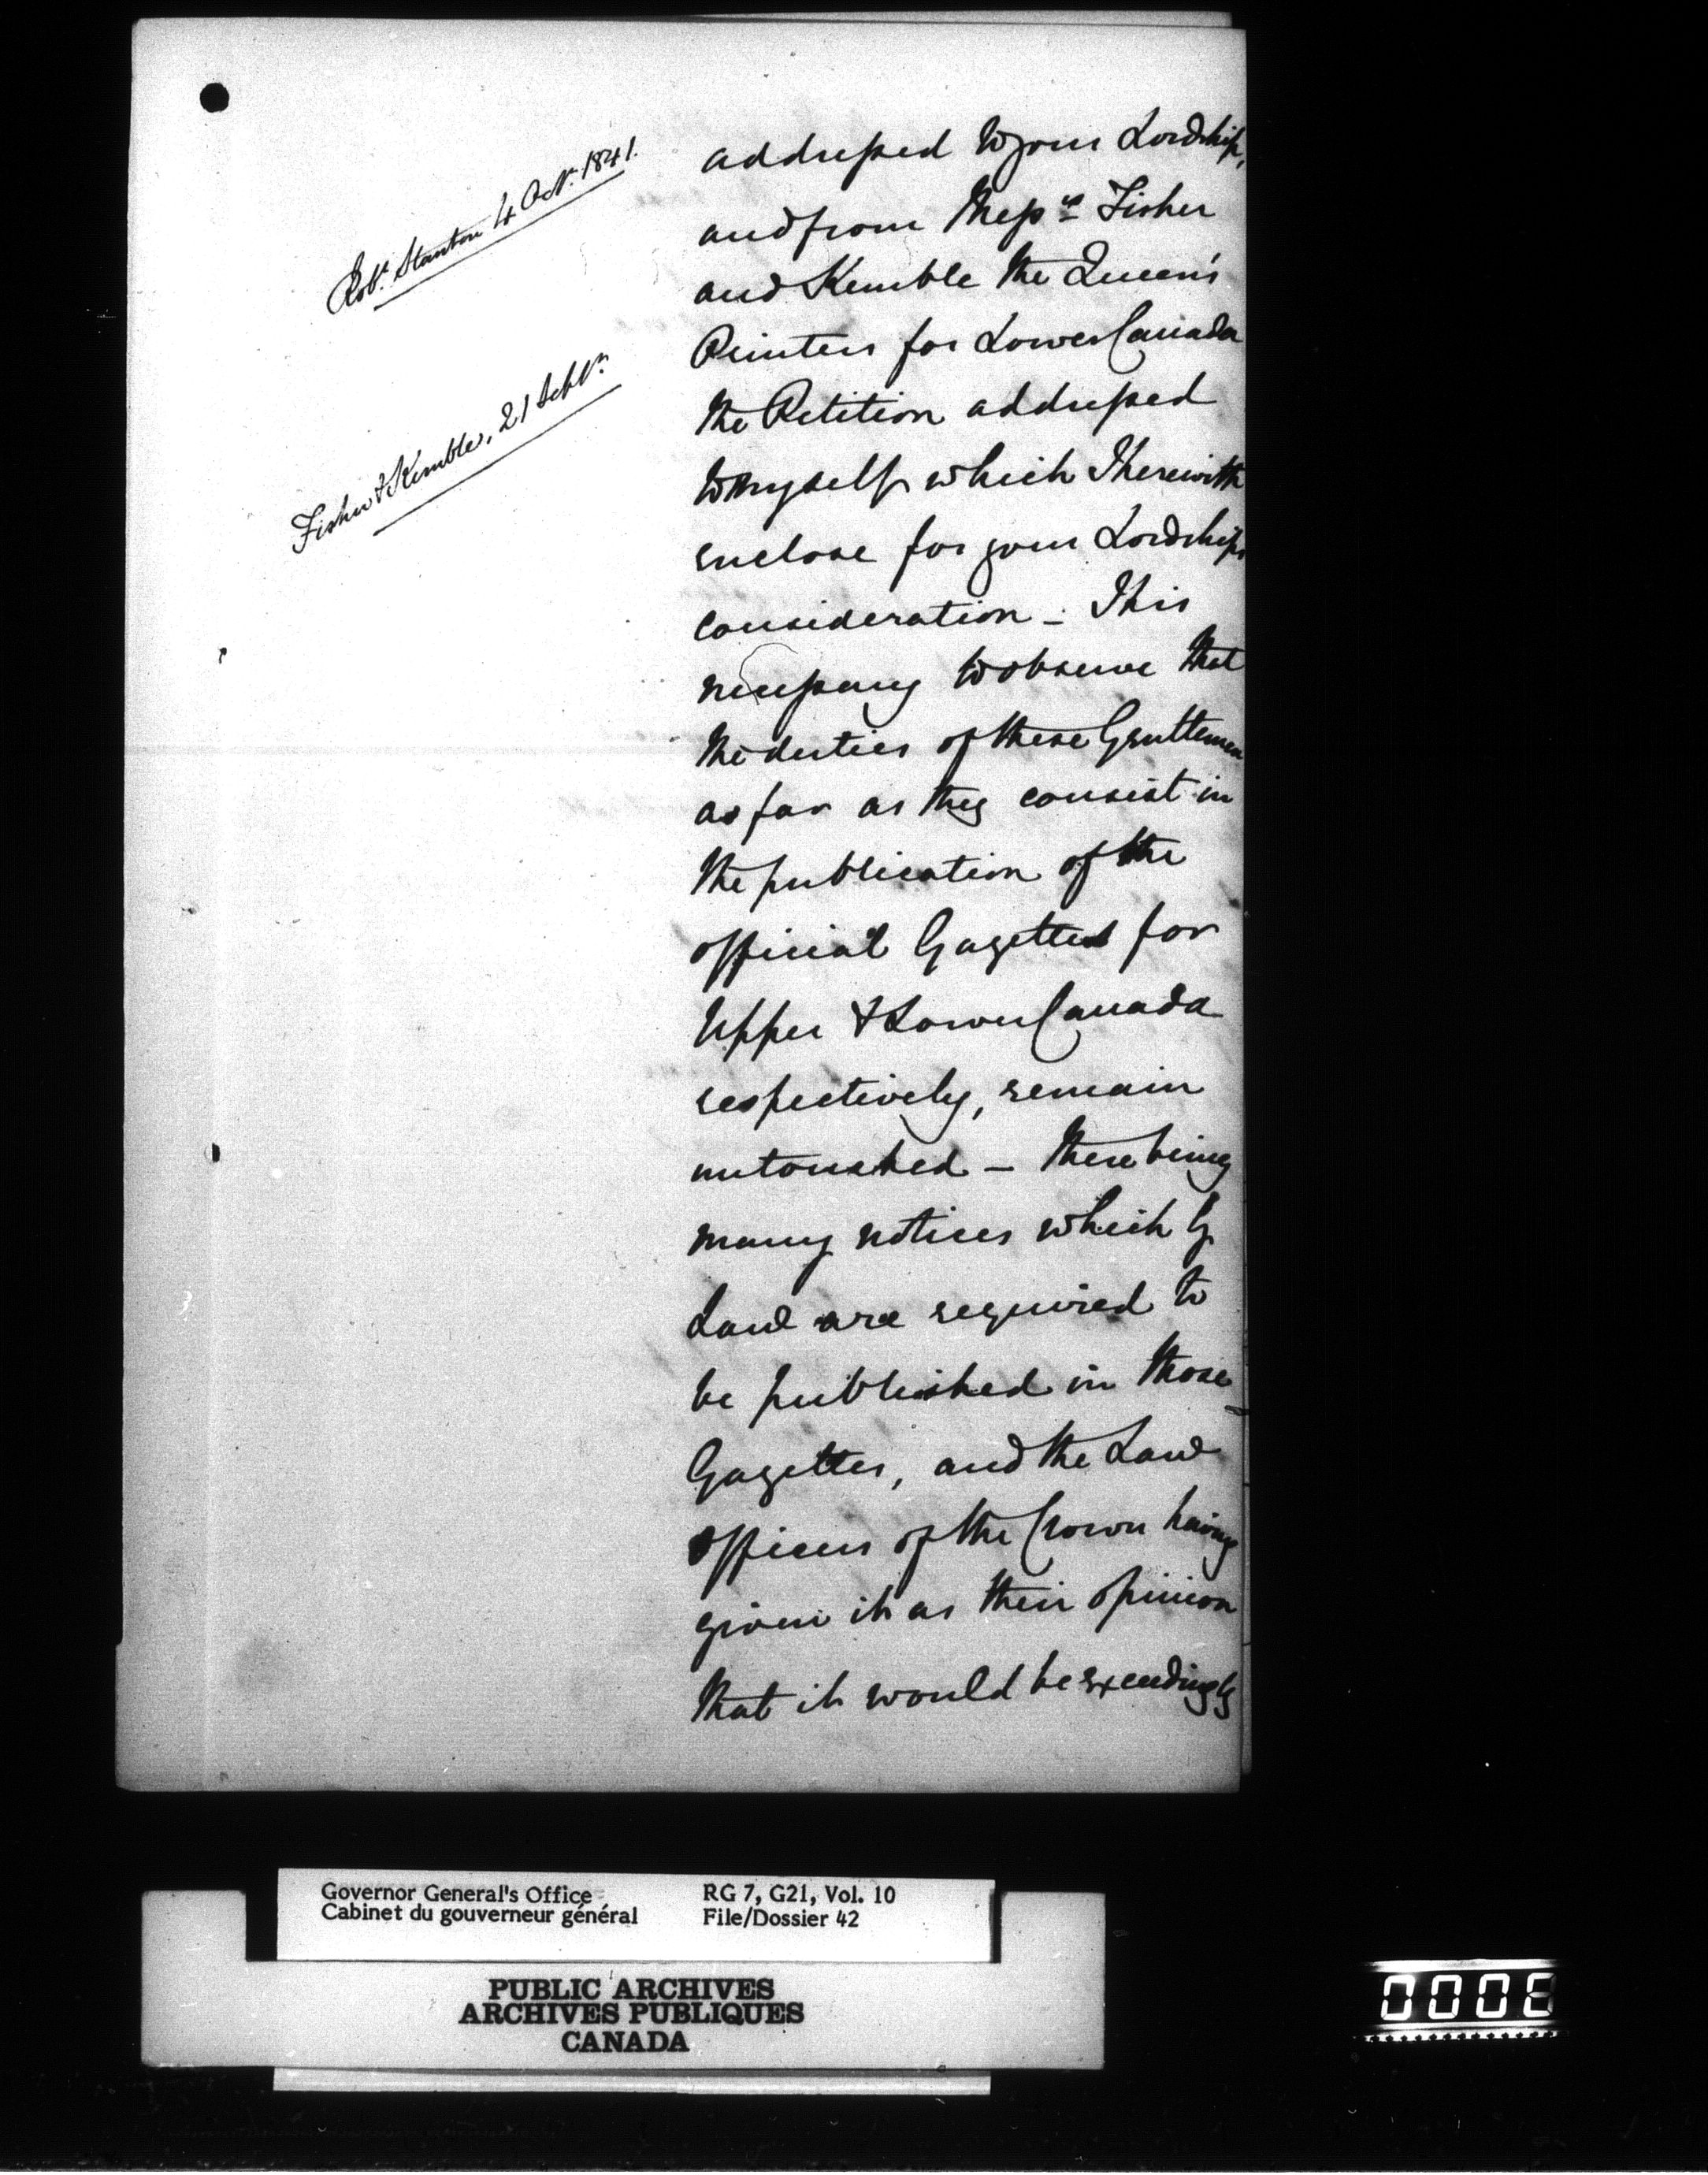 Robt. Stanton 4 Octr. 1841.
Fisher & Kemble, 21 Septr.
addressed to your Lordship,
and from Messrs Fisher
and Kemble the Queen's
Printers for Lower Canada
the Petition addressed
to myself which I herewith
enclose for your Lordships
consideration - This
necessary to observe that
the duties of these Gentlemen
as far as they consist in
the publication of the
official Gazettes for
Upper & Lower Canada
respectively, remain
untouched - there being
many notices which by
Law are required to
be published in those
Gazettes, and the Law
officers of the Crown having
given it as their opinion
that it would be exceedingly
Governor General's Office RG 7, G21, Vol. 10
Cabinet du gouverneur général File/Dossier 42
PUBLIC ARCHIVES
ARCHIVES PUBLIQUES
CANADA